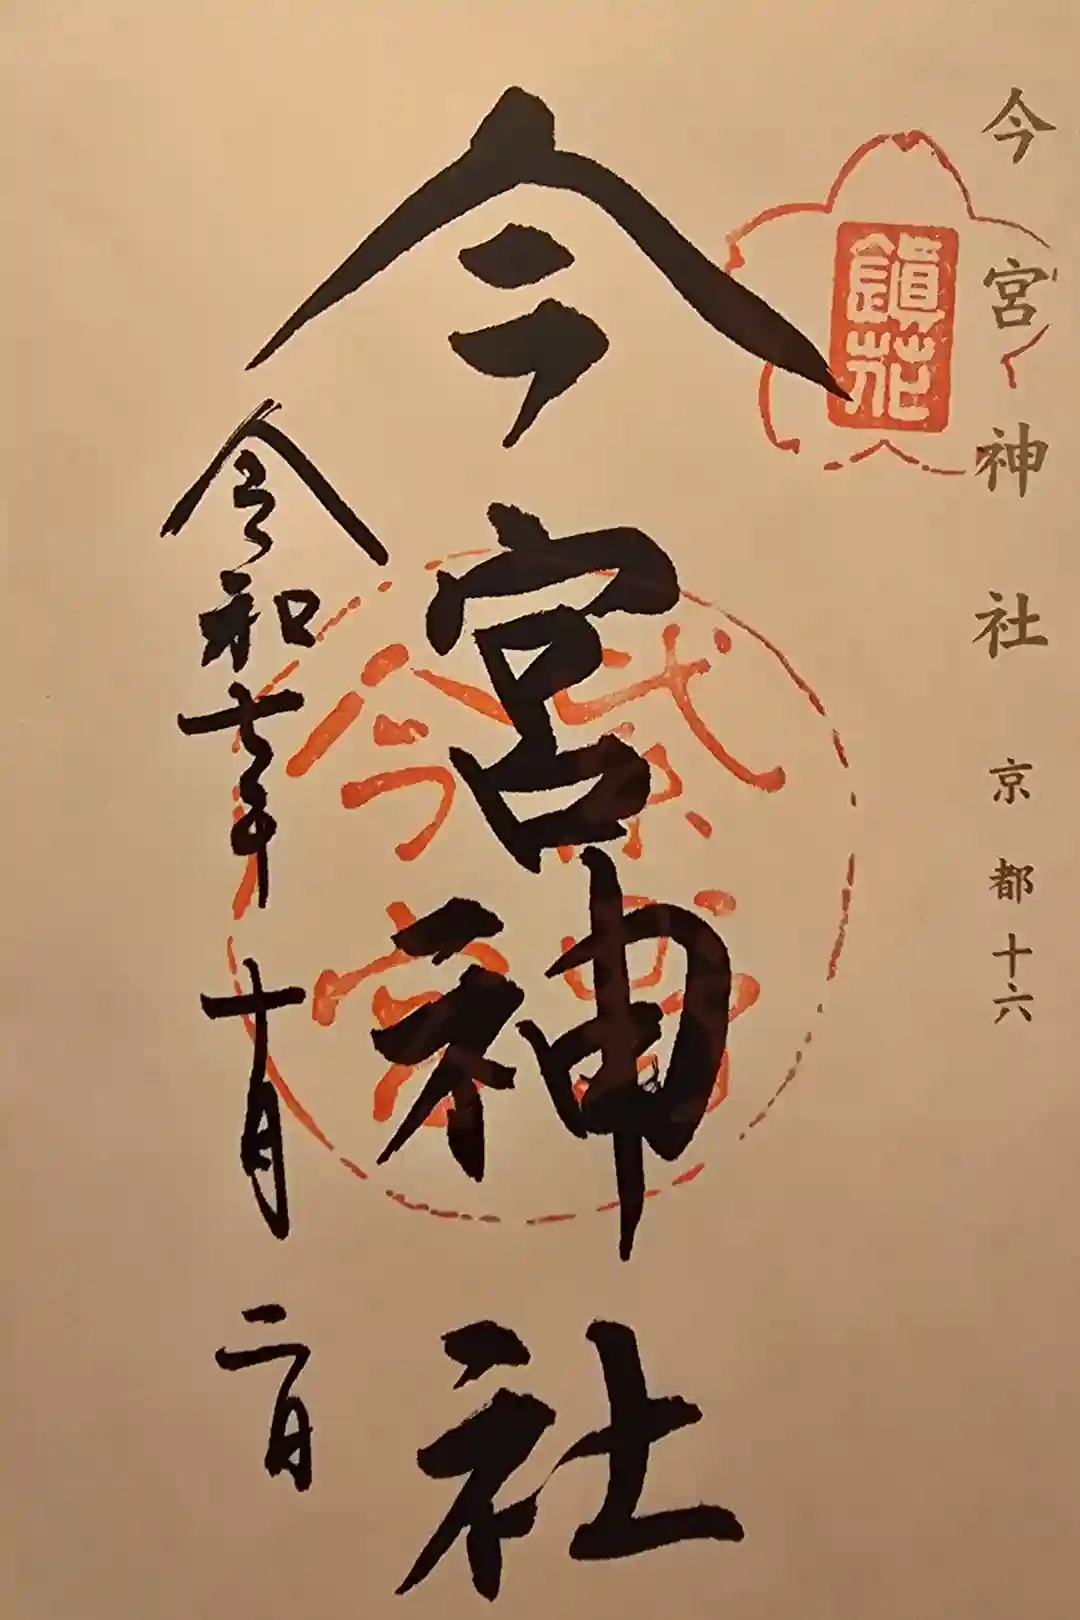 今宮神社 京都十六
鎮花
今宮神社
紫野
今宮
令和七年十月二日